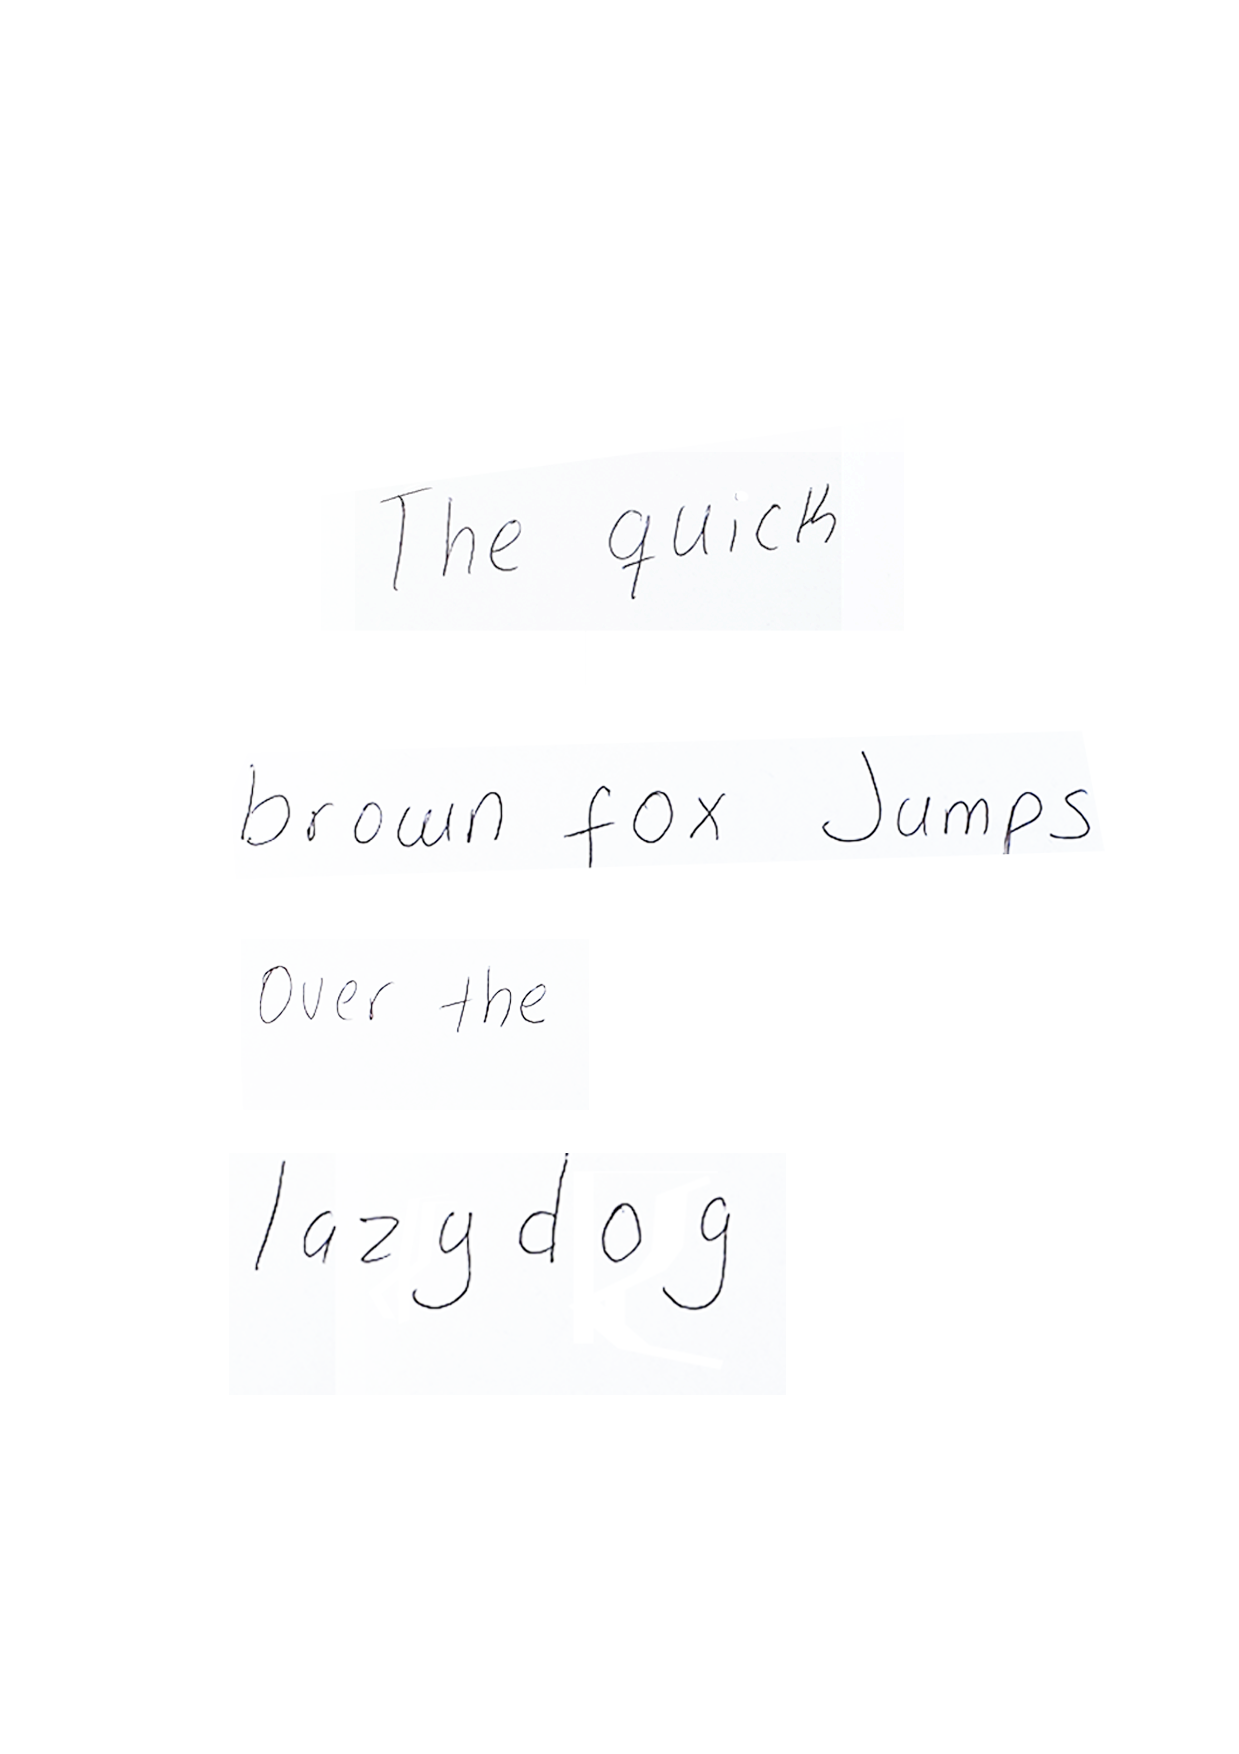 The quick
brown fox Jumps
Over the
lazy dog